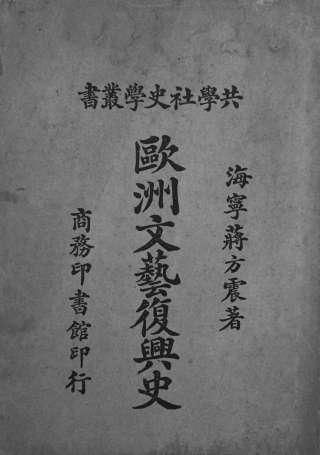 共學社史學叢書
海寧蔣方震著
歐洲文藝復興史
商務印書館印行